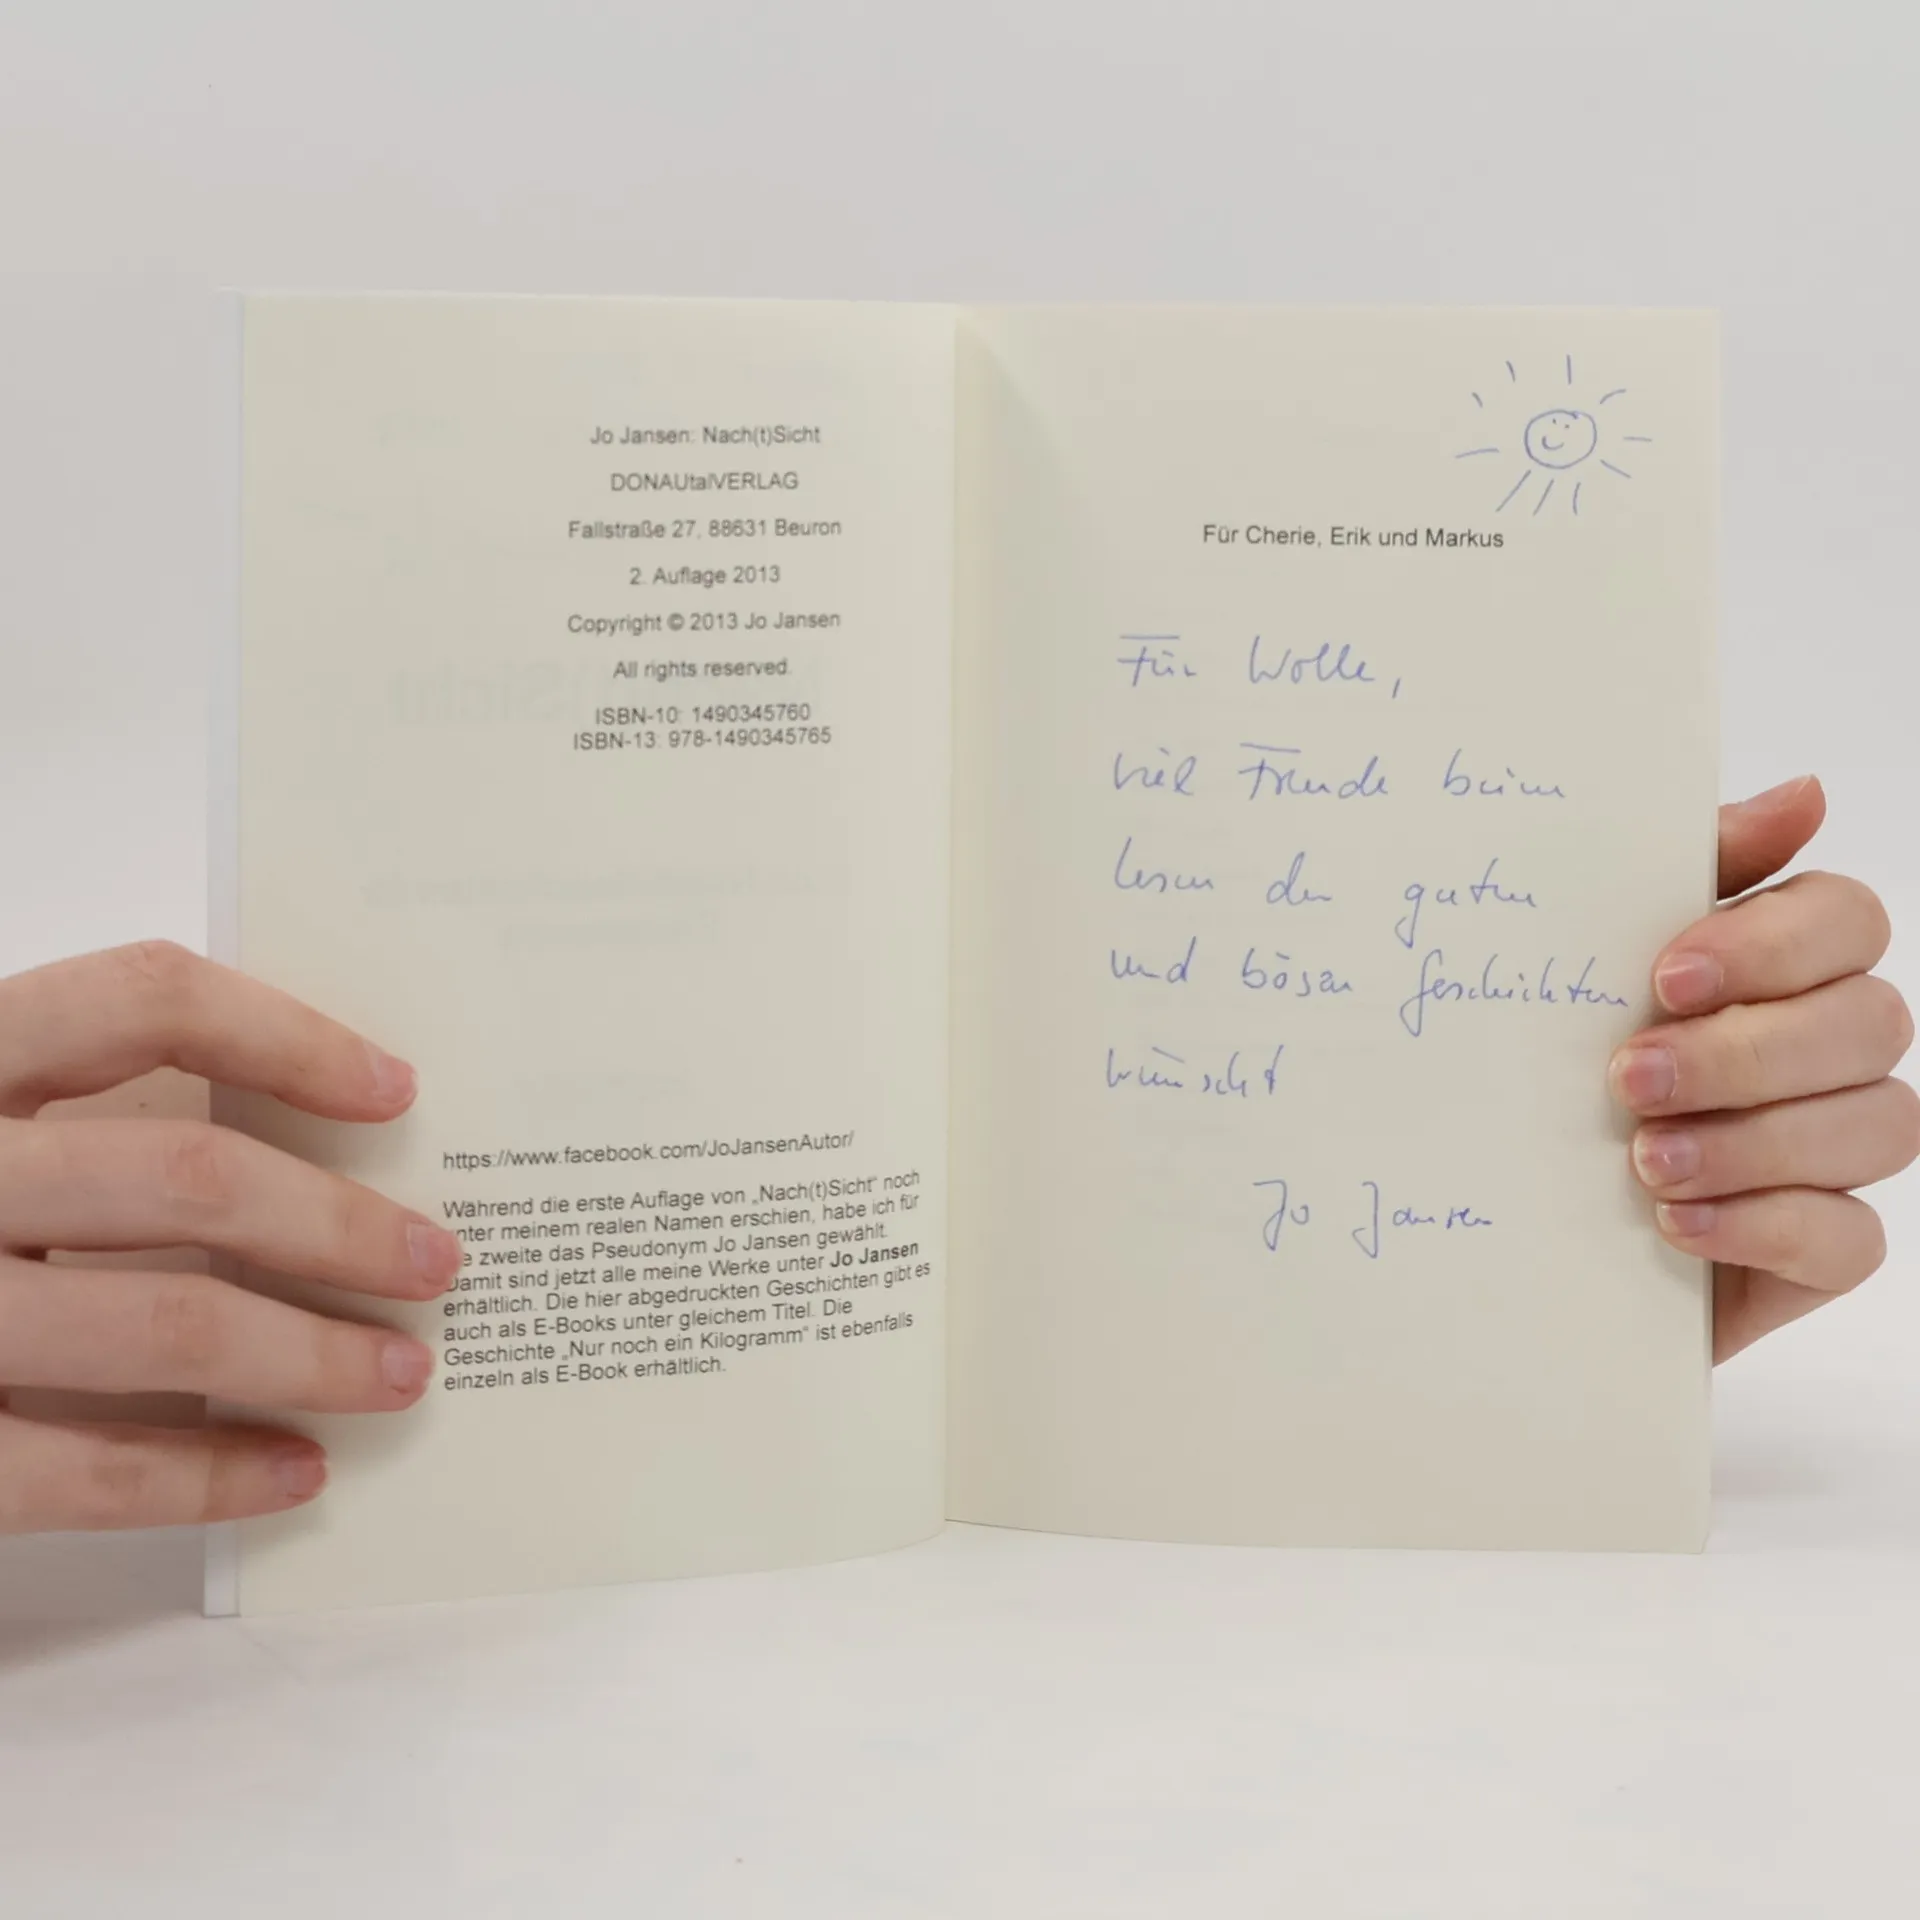 Jo Jansen: Nach(t)Sicht
DONAUtalVERLAG
Fallstraße 27, 88631 Beuron
2. Auflage 2013
Copyright © 2013 Jo Jansen
All rights reserved.
ISBN-10: 1490345760
ISBN-13: 978-1490345765
https://www.facebook.com/JoJansenAutor/
Während die erste Auflage von „Nach(t)Sicht" noch
unter meinem realen Namen erschien, habe ich für
zweite das Pseudonym Jo Jansen gewählt.
Damit sind jetzt alle meine Werke unter Jo Jansen
erhältlich. Die hier abgedruckten Geschichten gibt es
auch als E-Books unter gleichem Titel. Die
Geschichte „Nur noch ein Kilogramm" ist ebenfalls
einzeln als E-Book erhältlich.
Für Cherie, Erik und Markus
Für Wolle,
viel Freude beim
lesen der guten
und bösen Geschichten
wünscht
Jo Jansen